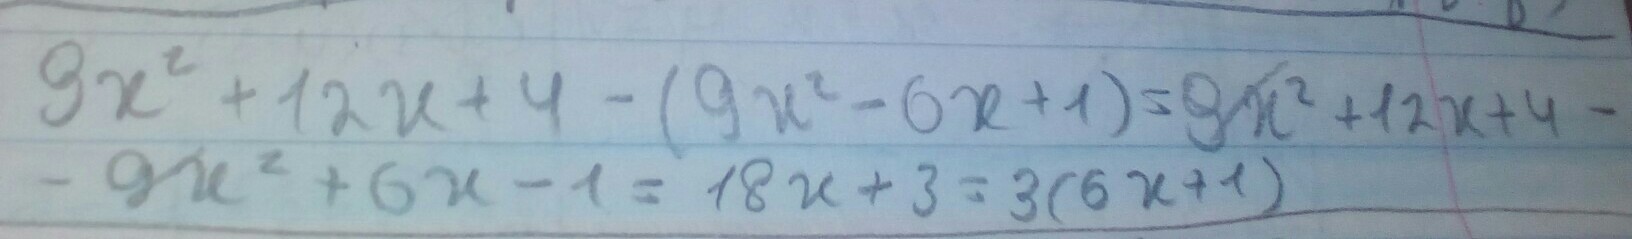 9x² + 12x + 4 - (9x² - 6x + 1) = 9x² + 12x + 4 -
- 9x² + 6x - 1 = 18x + 3 = 3(6x + 1)